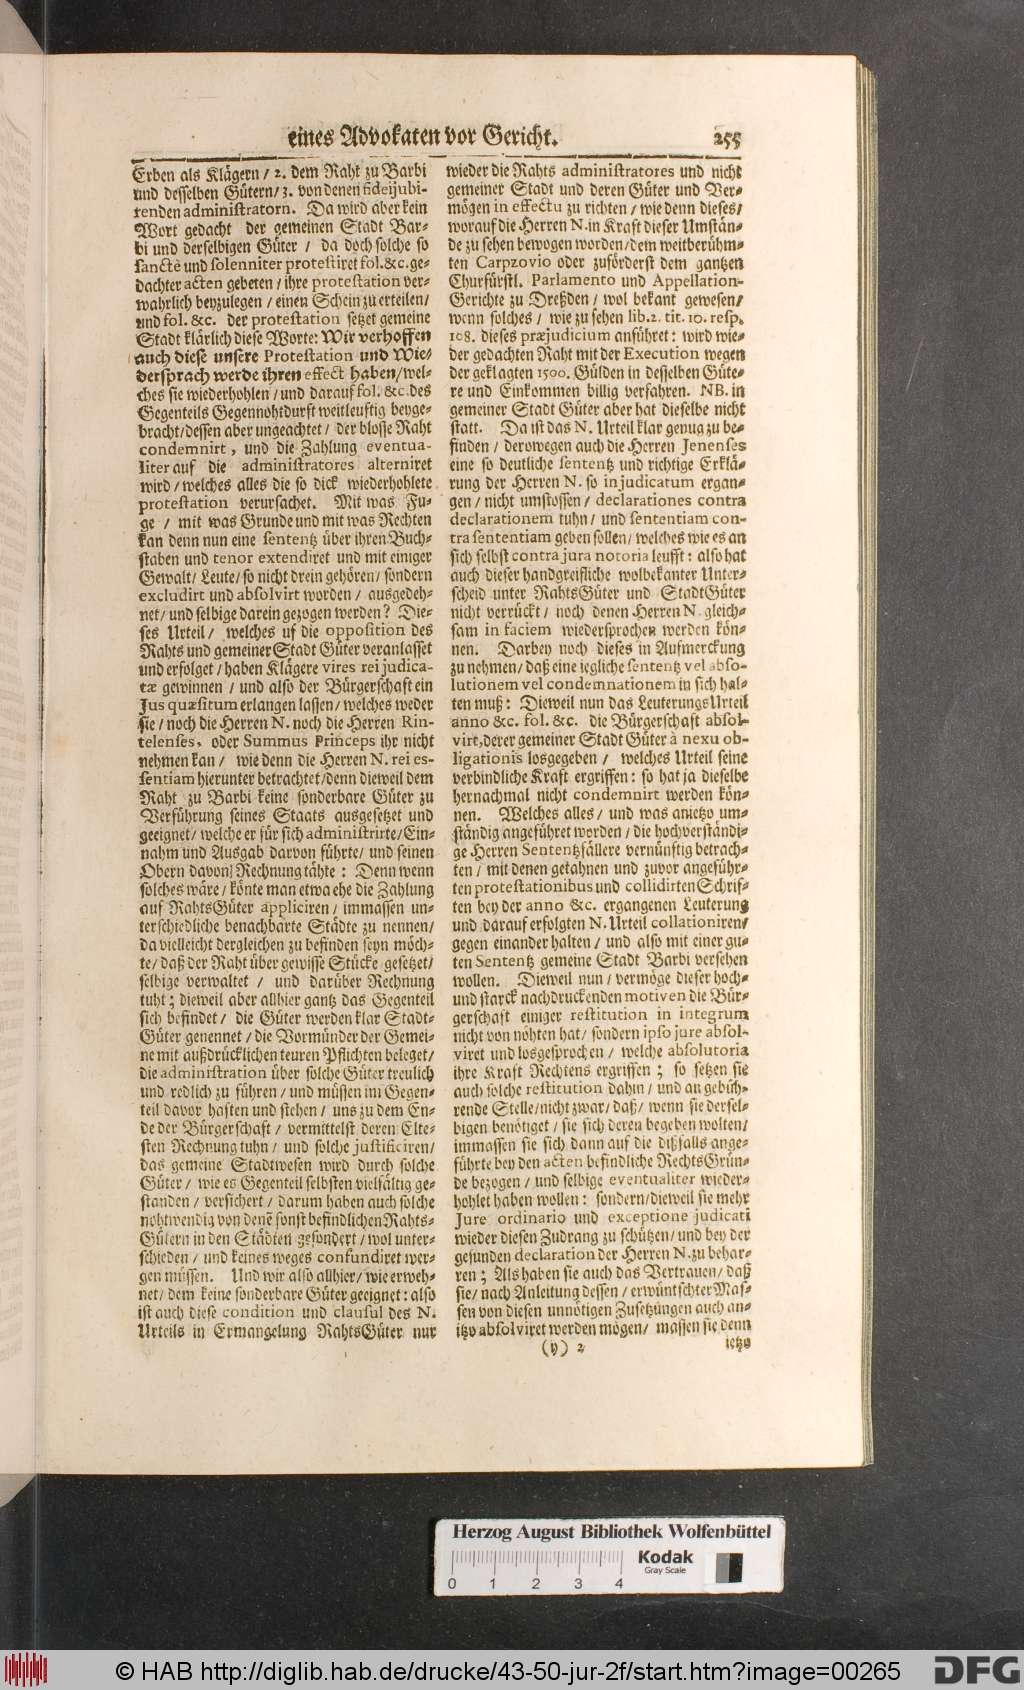 eines Advokaten vor Gericht. 255
Erben als Klägern / 2. dem Raht zu Barbi
und desselben Gütern / 3. von denen fideijubi-
renden administratorn. Da wird aber kein
Wort gedacht der gemeinen Stadt Bar-
bi und derselbigen Güter / da doch solche so
sanctè und solenniter protestiret fol. &c. ge-
dachter acten gebeten / ihre protestation ver-
wahrlich beyzulegen / einen Schein zu erteilen /
und fol. &c. der protestation setzet gemeine
Stadt klärlich diese Worte: Wir verhoffen
auch diese unsere Protestation und Wie-
dersprach werde ihren effect haben / wel-
ches sie wiederhohlen / und darauf fol. &c. des
Gegenteils Gegennohtdurft weitleuftig beyge-
bracht / dessen aber ungeachtet / der blosse Raht
condemnirt, und die Zahlung eventua-
liter auf die administratores alterniret
wird / welches alles die so dick wiederhohlete
protestation verursachet. Mit was Fu-
ge / mit was Grunde und mit was Rechten
kan denn nun eine sententz über ihren Buch-
staben und tenor extendiret und mit einiger
Gewalt / Leute / so nicht drein gehören / sondern
excludirt und absolvirt worden / ausgedeh-
net / und selbige darein gezogen werden? Die-
ses Urteil / welches uf die opposition des
Rahts und gemeiner Stadt Güter veranlasset
und erfolget / haben Klägere vires rei judica-
tæ gewinnen / und also der Bürgerschaft ein
Jus quæsitum erlangen lassen / welches weder
sie / noch die Herren N. noch die Herren Rin-
telenses, oder Summus Princeps ihr nicht
nehmen kan / wie denn die Herren N. rei es-
sentiam hierunter betrachtet / denn dieweil dem
Raht zu Barbi keine sonderbare Güter zu
Verführung seines Staats ausgesetzet und
geeignet / welche er für sich administrirte / Ein-
nahm und Ausgab darvon führte / und seinen
Obern davon Rechnung tähte: Denn wenn
solches wäre / könte man etwa ehe die Zahlung
auf RahtsGüter appliciren / immassen un-
terschiedliche benachbarte Städte zu nennen /
da vielleicht dergleichen zu befinden seyn möch-
te / daß der Raht über gewisse Stücke gesetzet /
selbige verwaltet / und darüber Rechnung
tuht; dieweil aber allhier gantz das Gegenteil
sich befindet / die Güter werden klar Stadt-
Güter genennet / die Vormünder der Gemei-
ne mit außdrücklichen teuren Pflichten beleget /
die administration über solche Güter treulich
und redlich zu führen / und müssen im Gegen-
teil davor haften und stehen / uns zu dem En-
de der Bürgerschaft / vermittelst deren Elte-
sten Rechnung tuhn / und solche justificiren /
das gemeine Stadtwesen wird durch solche
Güter / wie es Gegenteil selbsten vielfältig ge-
standen / versichert / darum haben auch solche
nohtwendig von denē sonst befindlichen Rahts-
Gütern in den Städten gesondert / wol unter-
schieden / und keines weges confundiret wer-
gen müssen. Und wir also allhier / wie erweh-
net / dem keine sonderbare Güter geeignet: also
ist auch diese condition und clausul des N.
Urteils in Ermangelung RahtsGüter nur
wieder die Rahts administratores und nicht
gemeiner Stadt und deren Güter und Ver-
mögen in effectu zu richten / wie denn dieses /
worauf die Herren N. in Kraft dieser Umstän-
de zu sehen bewogen worden / dem weitberühm-
ten Carpzovio oder zuförderst dem gantzen
Churfürstl. Parlamento und Appellation-
Gerichte zu Dreßden / wol bekant gewesen /
wenn solches / wie zu sehen lib. 2. tit. 10. resp.
108. dieses præjudicium anführet: wird wie-
der gedachten Raht mit der Execution wegen
der geklagten 1500. Gülden in desselben Güte-
re und Einkommen billig verfahren. NB. in
gemeiner Stadt Güter aber hat dieselbe nicht
statt. Da ist das N. Urteil klar genug zu be-
finden / derowegen auch die Herren Jenenses
eine so deutliche sententz und richtige Erklä-
rung der Herren N. so in judicatum ergan-
gen / nicht umstossen / declarationes contra
declarationem tuhn / und sententiam con-
tra sententiam geben sollen / welches wie es an
sich selbst contra jura notoria leufft: also hat
auch dieser handgreifliche wolbekanter Unter-
scheid unter RahtsGüter und StadtGüter
nicht verrückt / noch denen Herren N. gleich-
sam in faciem wiedersprochen werden kön-
nen. Darbey noch dieses in Aufmerckung
zu nehmen / daß eine iegliche sententz vel abso-
lutionem vel condemnationem in sich hal-
ten muß: Dieweil nun das Leuterungs Urteil
anno &c. fol. &c. die Bürgerschaft absol-
virt, derer gemeiner Stadt Güter à nexu ob-
ligationis losgegeben / welches Urteil seine
verbindliche Kraft ergriffen: so hat ja dieselbe
hernachmal nicht condemnirt werden kön-
nen. Welches alles / und was anietzo um-
ständig angeführet worden / die hochverständi-
ge Herren Sententzfällere vernünftig betrach-
ten / mit denen getahnen und zuvor angeführ-
ten protestationibus und collidirten Schrif-
ten bey der anno &c. ergangenen Leuterung
und darauf erfolgten N. Urteil collationiren /
gegen einander halten / und also mit einer gu-
ten Sententz gemeine Stadt Barbi versehen
wollen. Dieweil nun / vermöge dieser hoch-
und starck nachdruckenden motiven die Bür-
gerschaft einiger restitution in integrum
nicht von nöhten hat / sondern ipso jure absol-
viret und losgesprochen / welche absolutoria
ihre Kraft Rechtens ergriffen; so setzen sie
auch solche restitution dahin / und an gebüh-
rende Stelle / nicht zwar / daß / wenn sie dersel-
bigen benötiget / sie sich deren begeben wolten /
immassen sie sich dann auf die dißfalls ange-
führte bey den acten befindliche RechtsGrün-
de bezogen / und selbige eventualiter wieder-
hohlet haben wollen: sondern / dieweil sie mehr
Jure ordinario und exceptione judicati
wieder diesen Zudrang zu schützen / und bey der
gesunden declaration der Herren N. zu behar-
ren; Als haben sie auch das Vertrauen / daß
sie / nach Anleitung dessen / erwüntschter Mas-
sen von diesen unnötigen Zusetzungen auch an-
itzo absolviret werden mögen / massen sie denn
(y) 2 ietzo
Herzog August Bibliothek Wolfenbüttel
Kodak
Gray Scale
0 1 2 3 4
© HAB http://diglib.hab.de/drucke/43-50-jur-2f/start.htm?image=00265
DFG